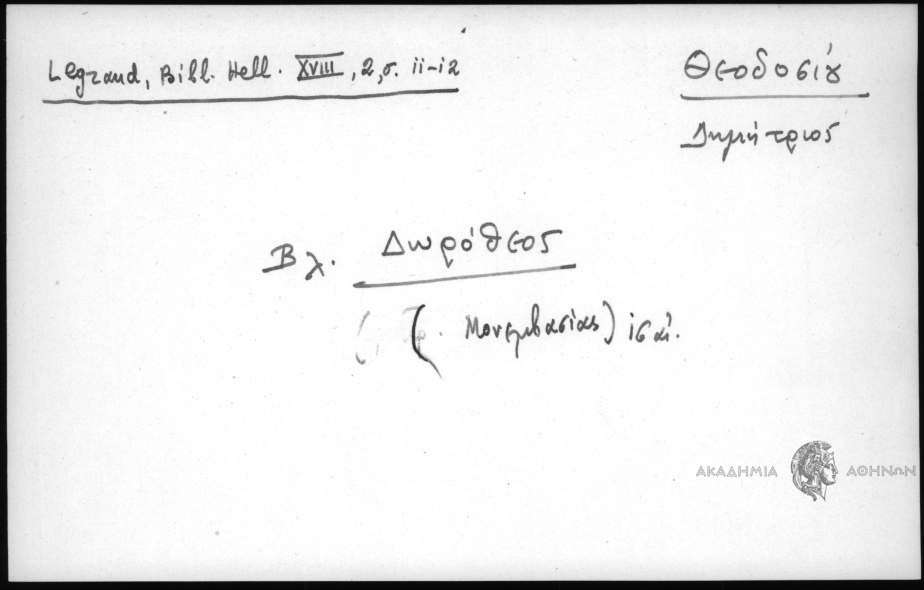 Legrand, Bibl. Hell. XVIII, 2, σ. 11-12
Θεοδοσίου
Δημήτριος
Βλ. Δωρόθεος
( Μονεμβασίας)
ΑΚΑΔΗΜΙΑ ΑΘΗΝΩΝ